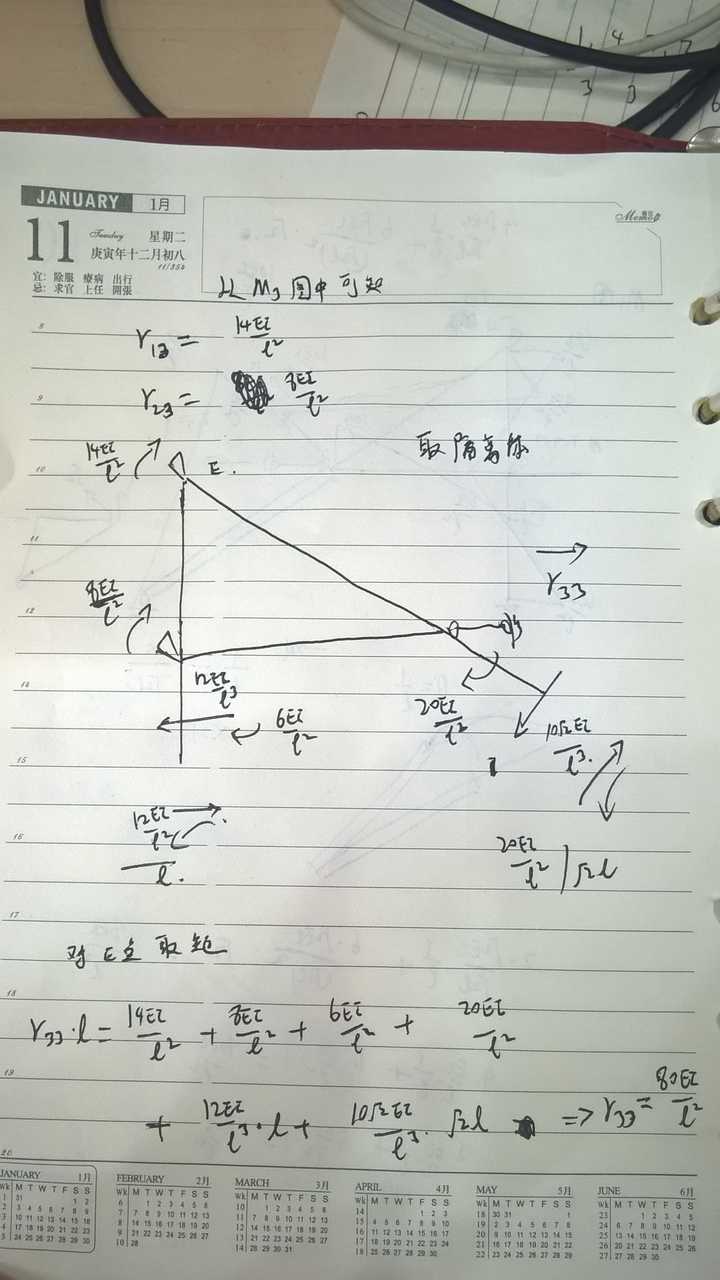 JANUARY 1月
11 Tuesday 星期二
庚寅年十二月初八
11/354
宜: 除服 療病 出行
忌: 求官 上任 開張
備忘 Memo
从 M3 图中可知
8
r13 = 14EI/l²
9
r23 = 8EI/l²
取隔离体
14EI/l²
E.
10
11
r33
8EI/l²
12
12EI/l³
6EI/l²
20EI/l²
10√2EI/l³.
14
15
12EI/l²
l.
16
20EI/l² / √2l
17
对 E点 取矩
18
r33·l = 14EI/l² + 8EI/l² + 6EI/l² + 20EI/l²
19
+ 12EI/l³·l + 10√2EI/l³·√2l => r33 = 80EI/l²
20
JANUARY 1月
FEBRUARY 2月
MARCH 3月
APRIL 4月
MAY 5月
JUNE 6月